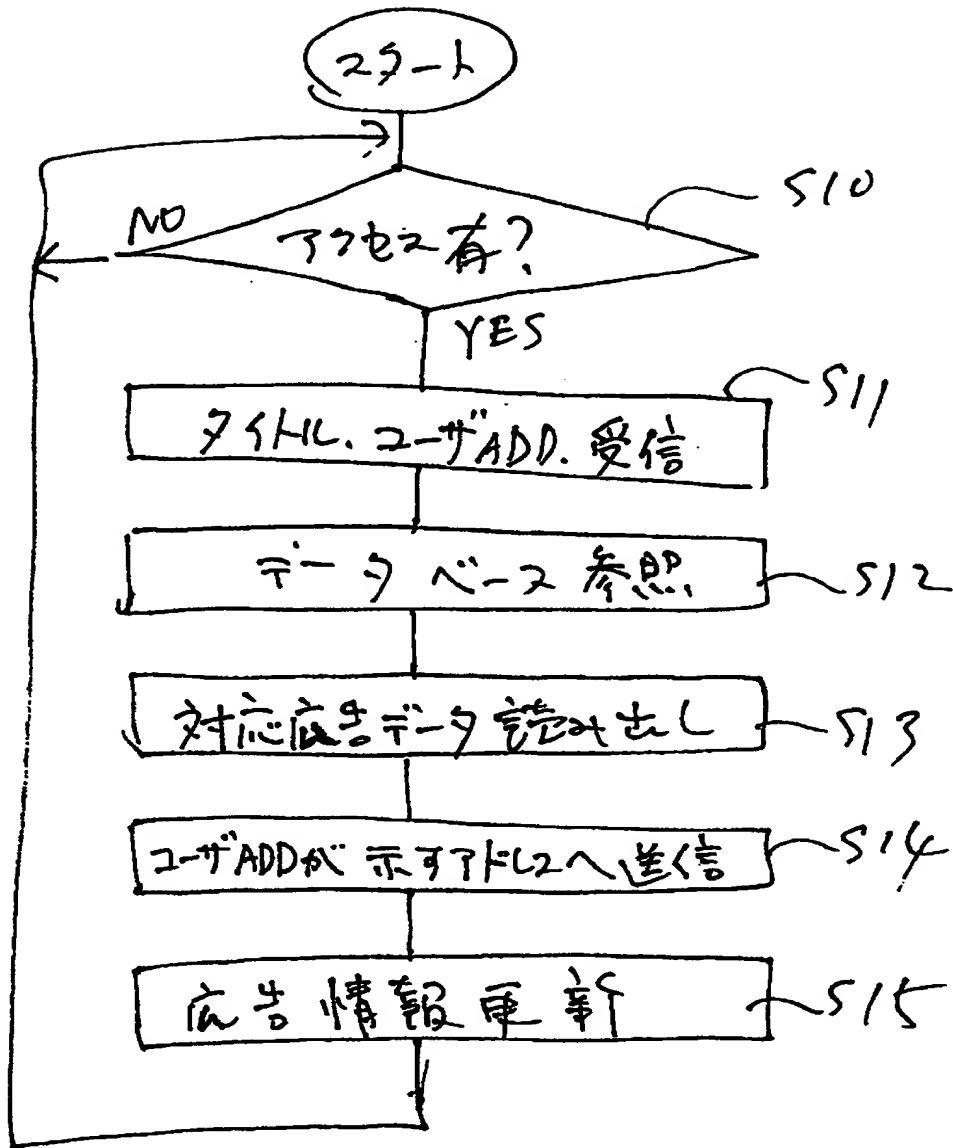 スタート
S10
NO
アクセス有?
YES
S11
タイトル、ユーザADD、受信
データベース参照
S12
対応広告データ読み出し
S13
ユーザADDが示すアドレスへ送信
S14
広告情報更新
S15